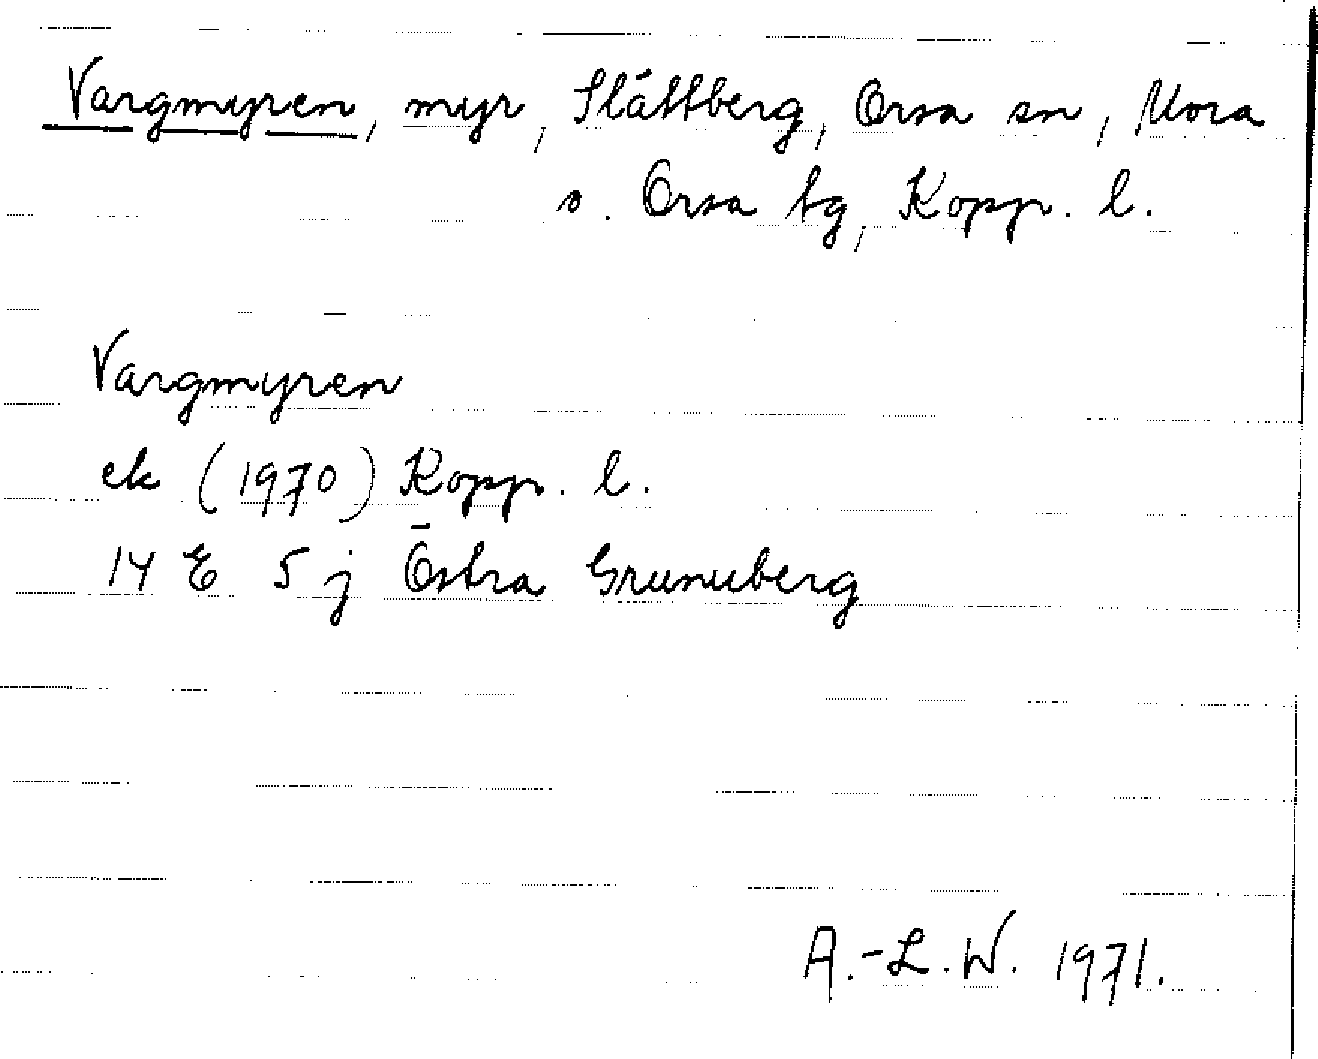 Vargmyren, myr, Slättberg, Orsa sn, Mora
o. Orsa tg, Kopp. l.
Vargmyren
ek (1970) Kopp. l.
14 E 5 j Östra Grunuberg
A.-L.W. 1971.